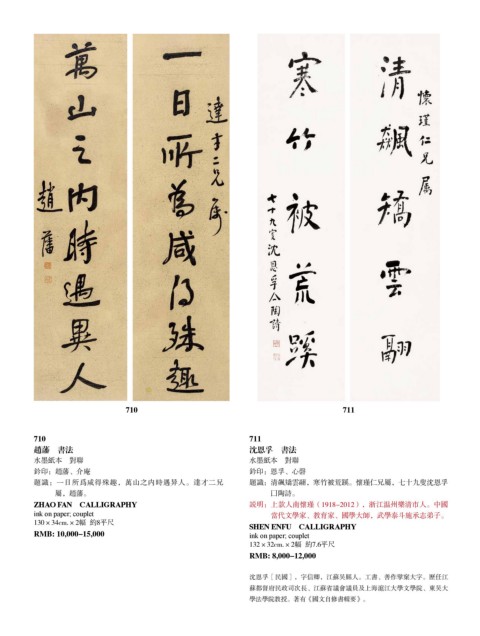 一日所為咸得殊趣
達才二兄属
萬山之内時遇異人
趙藩
清飆矯雲翮
懷瑾仁兄属
寒竹被荒蹊
七十九叟沈恩孚亼陶詩
710
711
710
趙藩 書法
水墨紙本 對聯
鈐印：趙藩、介庵
題識：一日所爲咸得殊趣，萬山之内時遇异人。達才二兄
屬，趙藩。
ZHAO FAN CALLIGRAPHY
ink on paper; couplet
130 × 34cm. × 2幅 約8平尺
RMB: 10,000–15,000
711
沈恩孚 書法
水墨紙本 對聯
鈐印：恩孚、心磬
題識：清飆矯雲翮，寒竹被荒蹊。懷瑾仁兄屬，七十九叟沈恩孚
亼陶詩。
説明：上款人南懷瑾（1918–2012），浙江温州樂清市人。中國
當代文學家、教育家、國學大師，武學泰斗施承志弟子。
SHEN ENFU CALLIGRAPHY
ink on paper; couplet
132 × 32cm. × 2幅 約7.6平尺
RMB: 8,000–12,000
沈恩孚［民國］，字信卿，江蘇吴縣人。工書，善作擘窠大字。歷任江
蘇都督府民政司次長、江蘇省議會議員及上海滬江大學文學院、東吴大
學法學院教授。著有《國文自修書輯要》。